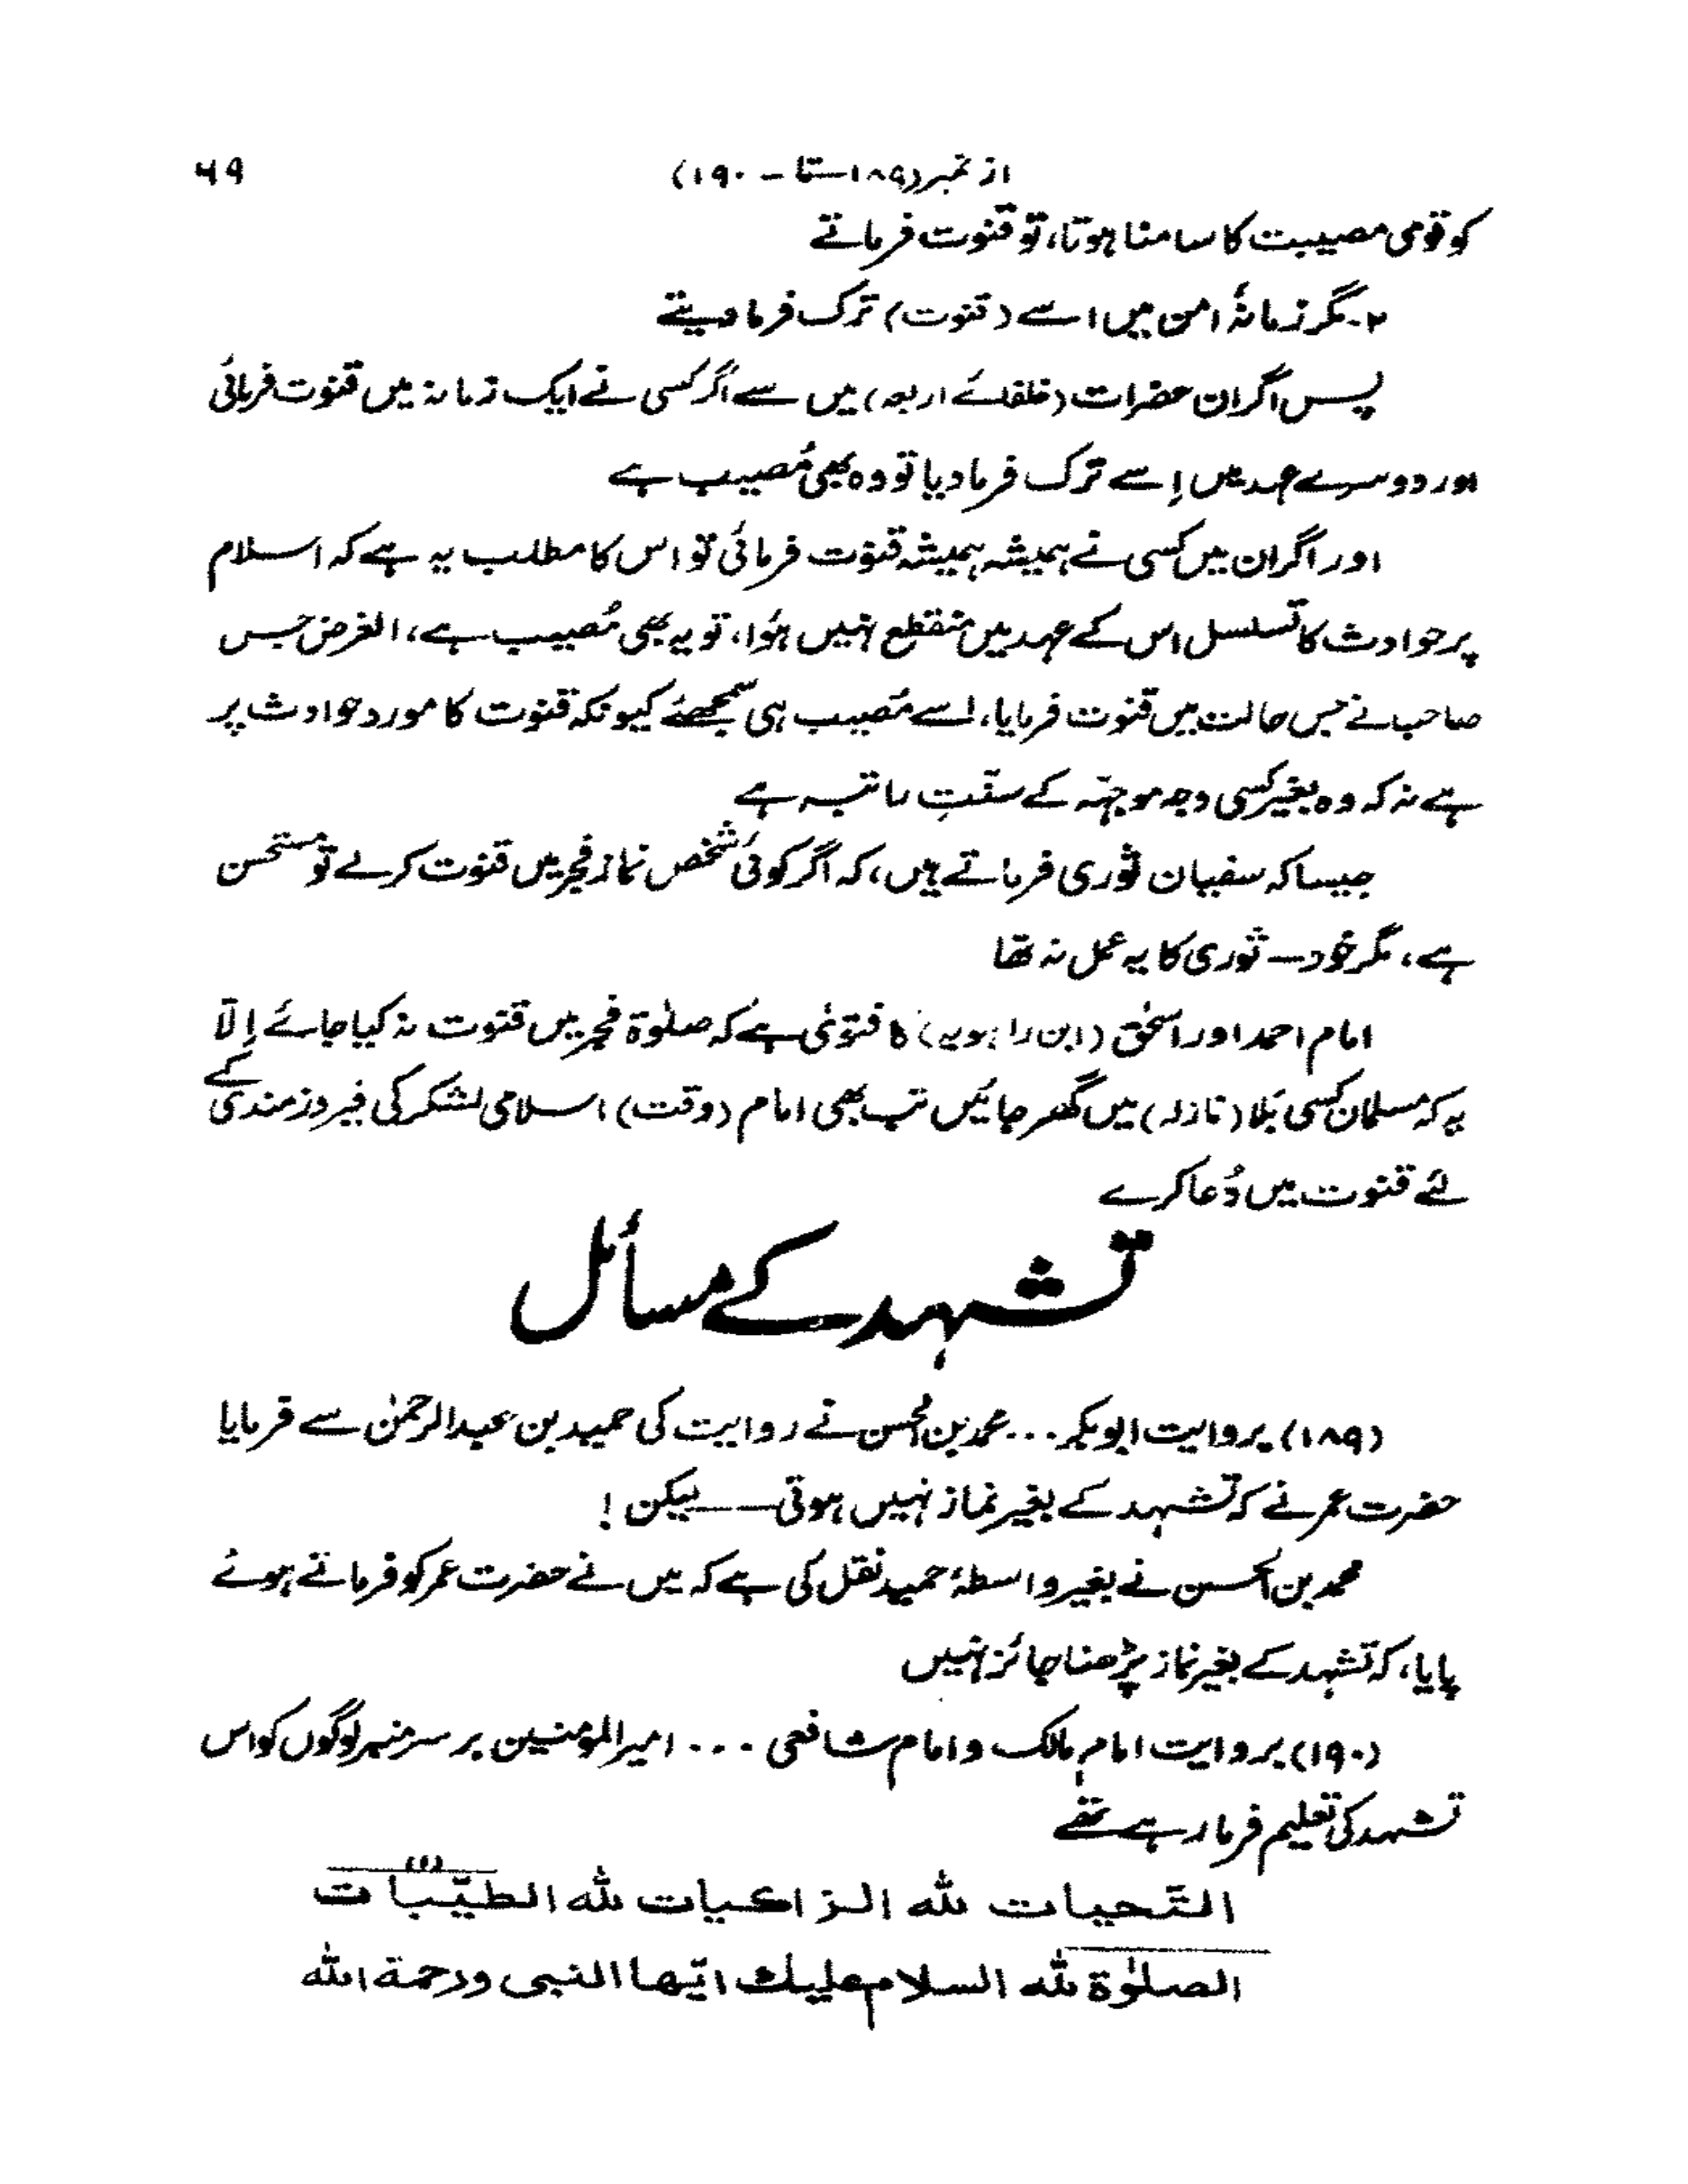 از نمبر (۱۸۹ تا - ۱۹۰) ۶۹
کو قومی مصیبت کا سامنا ہوتا، تو قنوت فرماتے
۲- مگر زمانۂ امن میں اسے (قنوت) ترک فرما دیتے
پس اگر ان حضرات (خلفائے اربعہ) میں سے اگر کسی نے ایک زمانہ میں قنوت فرمائی
اور دوسرے عہد میں اِسے ترک فرما دیا تو وہ بھی مُصیب ہے
اور اگر ان میں کسی نے ہمیشہ ہمیشہ قنوت فرمائی تو اس کا مطلب یہ ہے کہ اسلام
پر حوادث کا تسلسل اس کے عہد میں منقطع نہیں ہوُا، تو یہ بھی مُصیب ہے، الغرض جس
صاحب نے جس حالت میں قنوت فرمایا، اسے مُصیب ہی سمجھئے کیونکہ قنوت کا مورد حوادث پر
ہے نہ کہ وہ بغیر کسی وجہ موجہّہ کے سنّتِ راتبہ ہے
جیسا کہ سفیان ثوری فرماتے ہیں، کہ اگر کوئی شخص نماز فجر میں قنوت کرلے تو مستحسن
ہے، مگر خود — ثوری کا یہ عمل نہ تھا
امام احمد اور اسحٰق (ابن راہویہ) کا فتویٰ ہے کہ صلوٰۃ فجر میں قنوت نہ کیا جائے اِلّا
یہ کہ مسلمان کسی بَلا (نازلہ) میں گھر جائیں تب بھی امام (وقت) اسلامی لشکر کی فیروزمندی کے
لئے قنوت میں دُعا کرے
تشہد کے مسائل
(۱۸۹) بروایت ابوبکر... محمد بن محسن نے روایت کی حمید بن عبدالرحمٰن سے فرمایا
حضرت عمر نے کہ تشہد کے بغیر نماز نہیں ہوتی —— لیکن!
محمد بن الحسن نے بغیر واسطۂ حمید نقل کی ہے کہ میں نے حضرت عمر کو فرماتے ہوئے
پایا، کہ تشہد کے بغیر نماز پڑھنا جائز نہیں
(۱۹۰) بروایت امام مالک و امام شافعی ... امیرالمؤمنین بر سرِ منبر لوگوں کو اس
تشہد کی تعلیم فرما رہے تھے
التّحیات لله الزاکیات لله الطیّبات (۱)
الصلوٰة لله السلام علیك ایّها النبی ورحمة الله